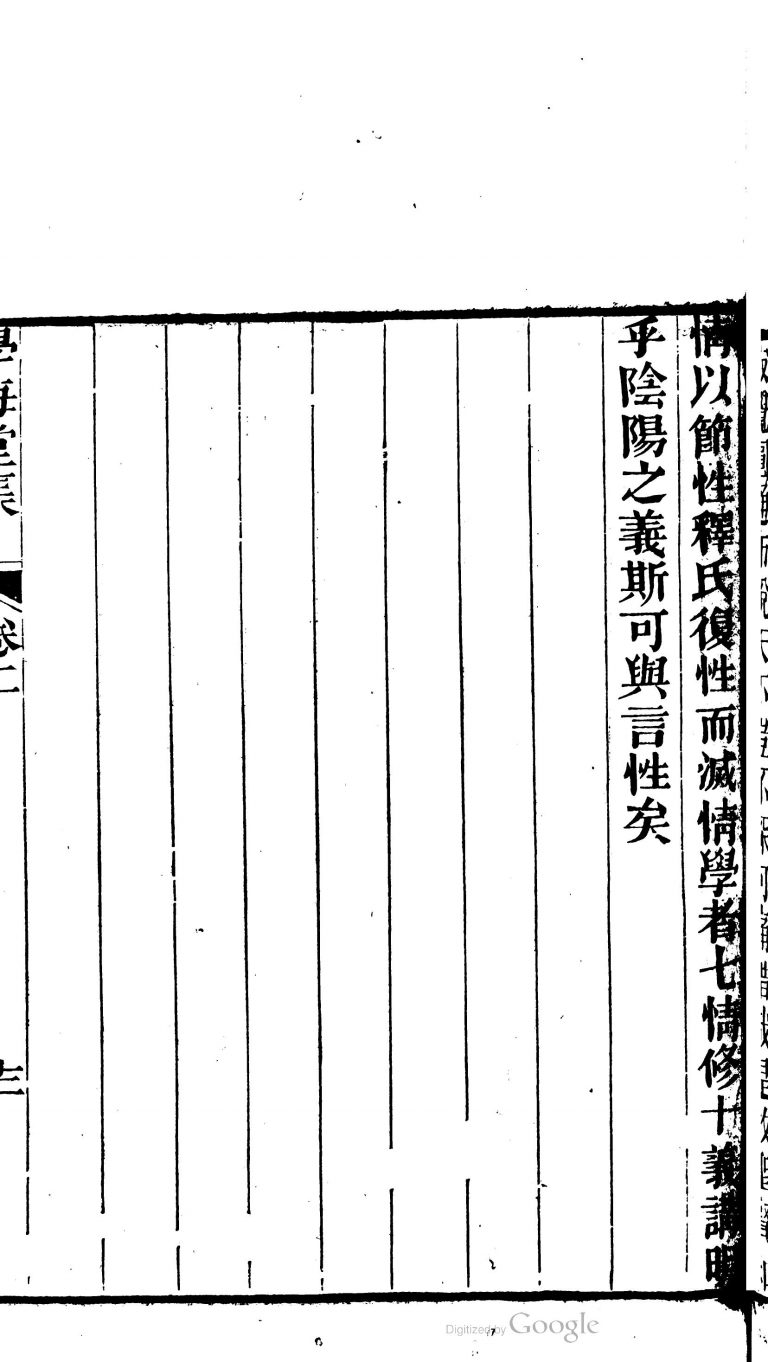 情以節性釋氏復性而滅情學者七情修十義講明
乎陰陽之義斯可與言性矣
學海堂集
卷二
Digitized by Google